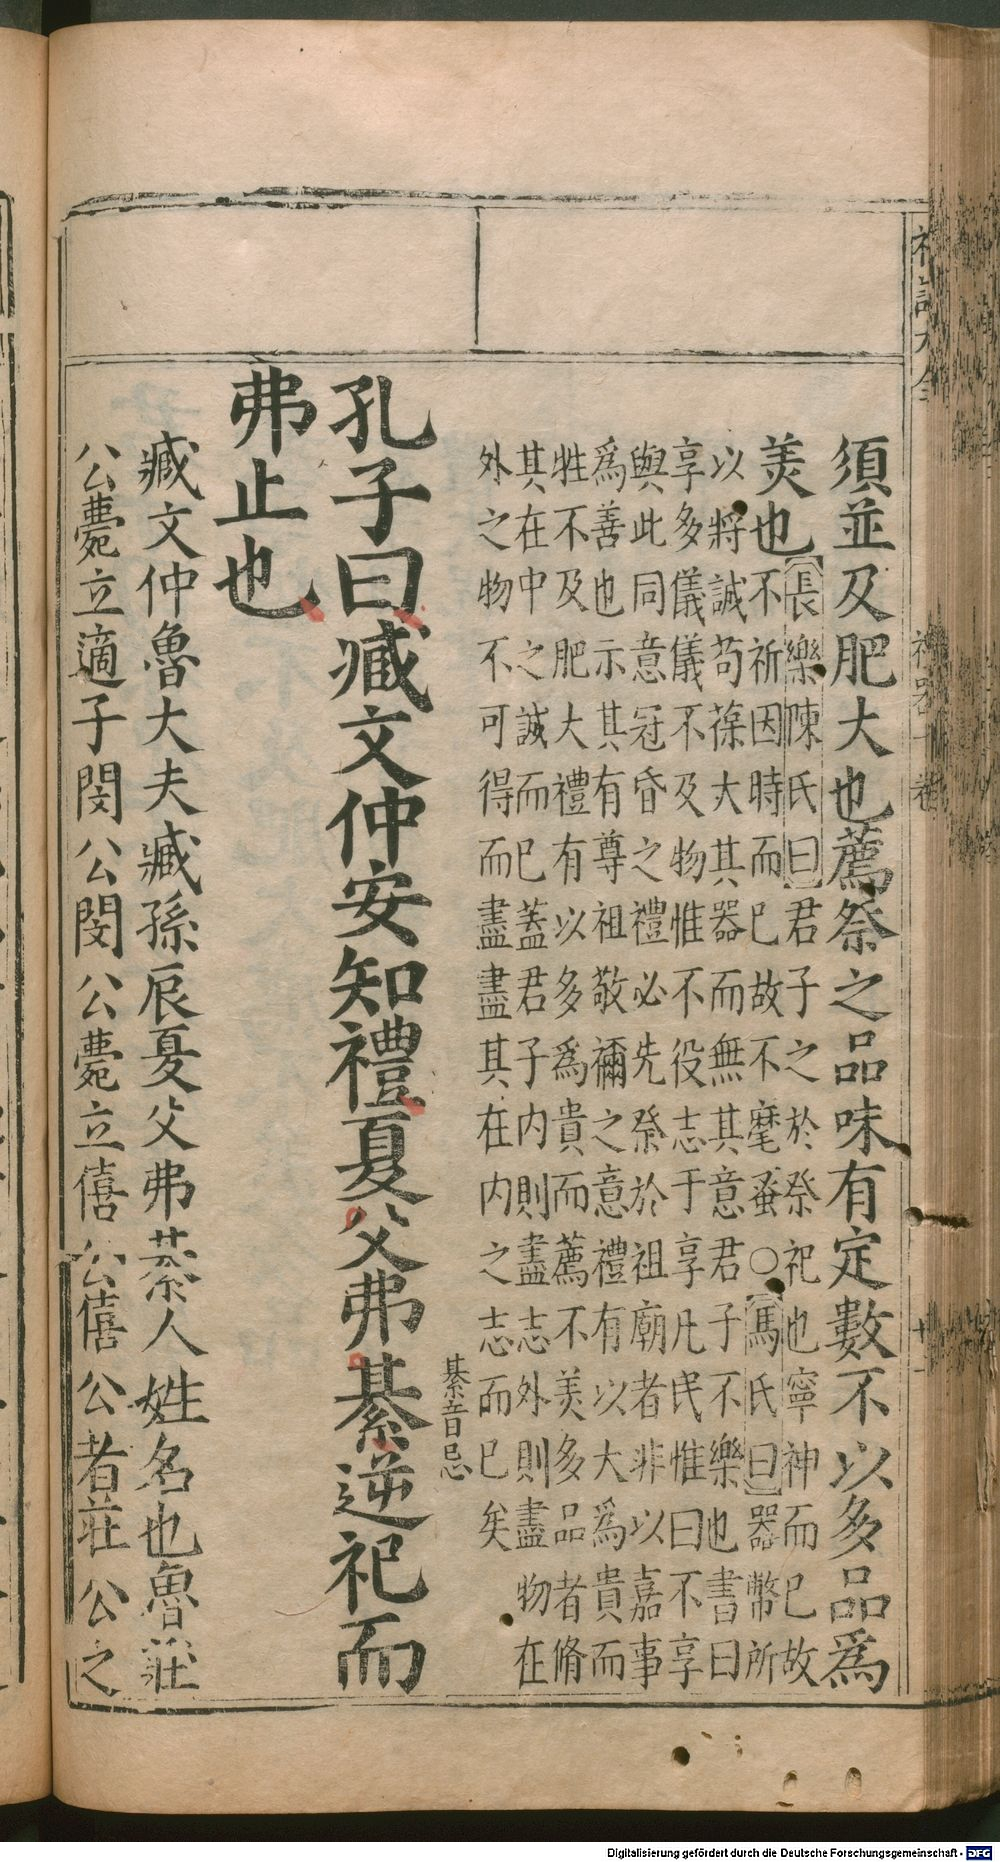 須並及肥大也薦祭之品味有定數不以多品爲
美也
長樂陳氏曰君子之於祭祀也寧神而已故
不祈因時而已故不麾蚤○馬氏曰器幣所
以將誠苟葆大其器而無其意君子不樂也書曰
享多儀儀不及物惟不役志于享凡民惟曰不享
與此同意冠昏之禮必先祭於祖廟者非以嘉事
爲善也示其有尊祖敬禰之意禮有以大爲貴而
牲不及肥大禮有以多爲貴而薦不美多品者脩
其在中之誠而已蓋君子内則盡志外則盡物在
外之物不可得而盡盡其在内之志而已矣
綦音忌
孔子曰臧文仲安知禮夏父弗綦逆祀而
弗止也
臧文仲魯大夫臧孫辰夏父弗綦人姓名也魯莊
公薨立適子閔公閔公薨立僖公僖公者莊公之
Digitalisierung gefördert durch die Deutsche Forschungsgemeinschaft - DFG